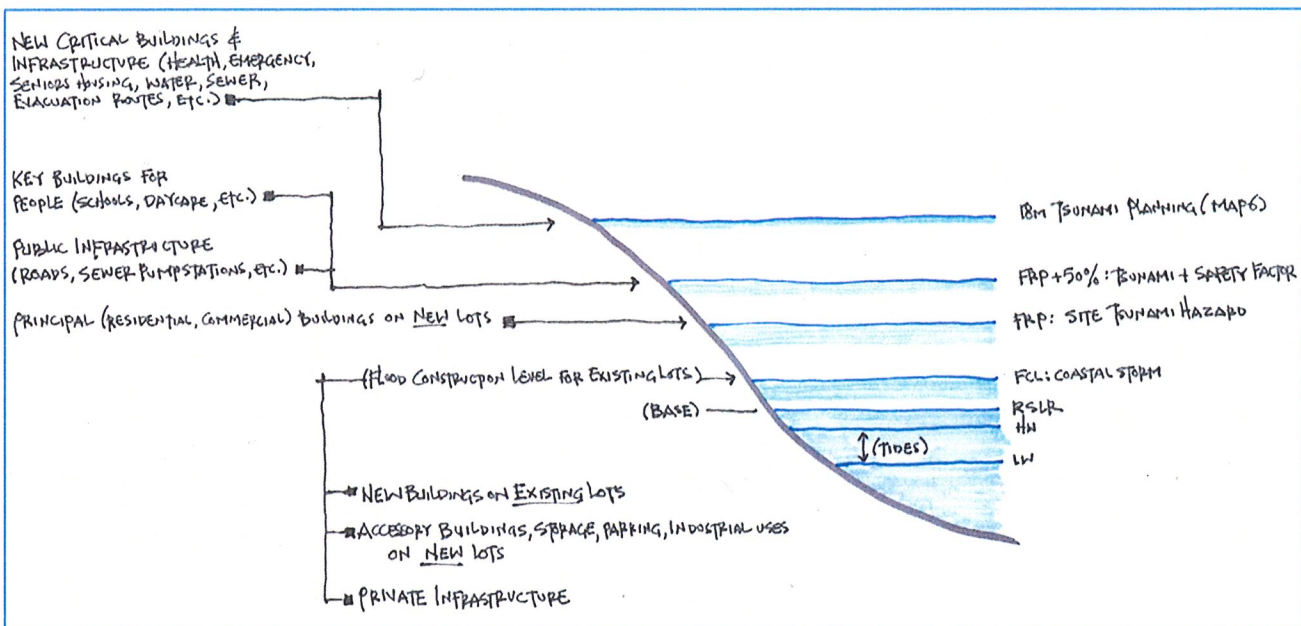 NEW CRITICAL BUILDINGS &
INFRASTRUCTURE (HEALTH, EMERGENCY,
SENIORS HOUSING, WATER, SEWER,
EVACUATION ROUTES, ETC.)
KEY BUILDINGS FOR
PEOPLE (SCHOOLS, DAYCARE, ETC.)
PUBLIC INFRASTRUCTURE
(ROADS, SEWER PUMPSTATIONS, ETC.)
PRINCIPAL (RESIDENTIAL, COMMERCIAL) BUILDINGS ON NEW LOTS
(FLOOD CONSTRUCTION LEVEL FOR EXISTING LOTS)
(BASE)
NEW BUILDINGS ON EXISTING LOTS
ACCESSORY BUILDINGS, STORAGE, PARKING, INDUSTRIAL USES
ON NEW LOTS
PRIVATE INFRASTRUCTURE
18M TSUNAMI PLANNING (MAP 6)
FRP + 50% : TSUNAMI + SAFETY FACTOR
FRP : SITE TSUNAMI HAZARD
FCL : COASTAL STORM
RSLR
HW
(TIDES)
LW